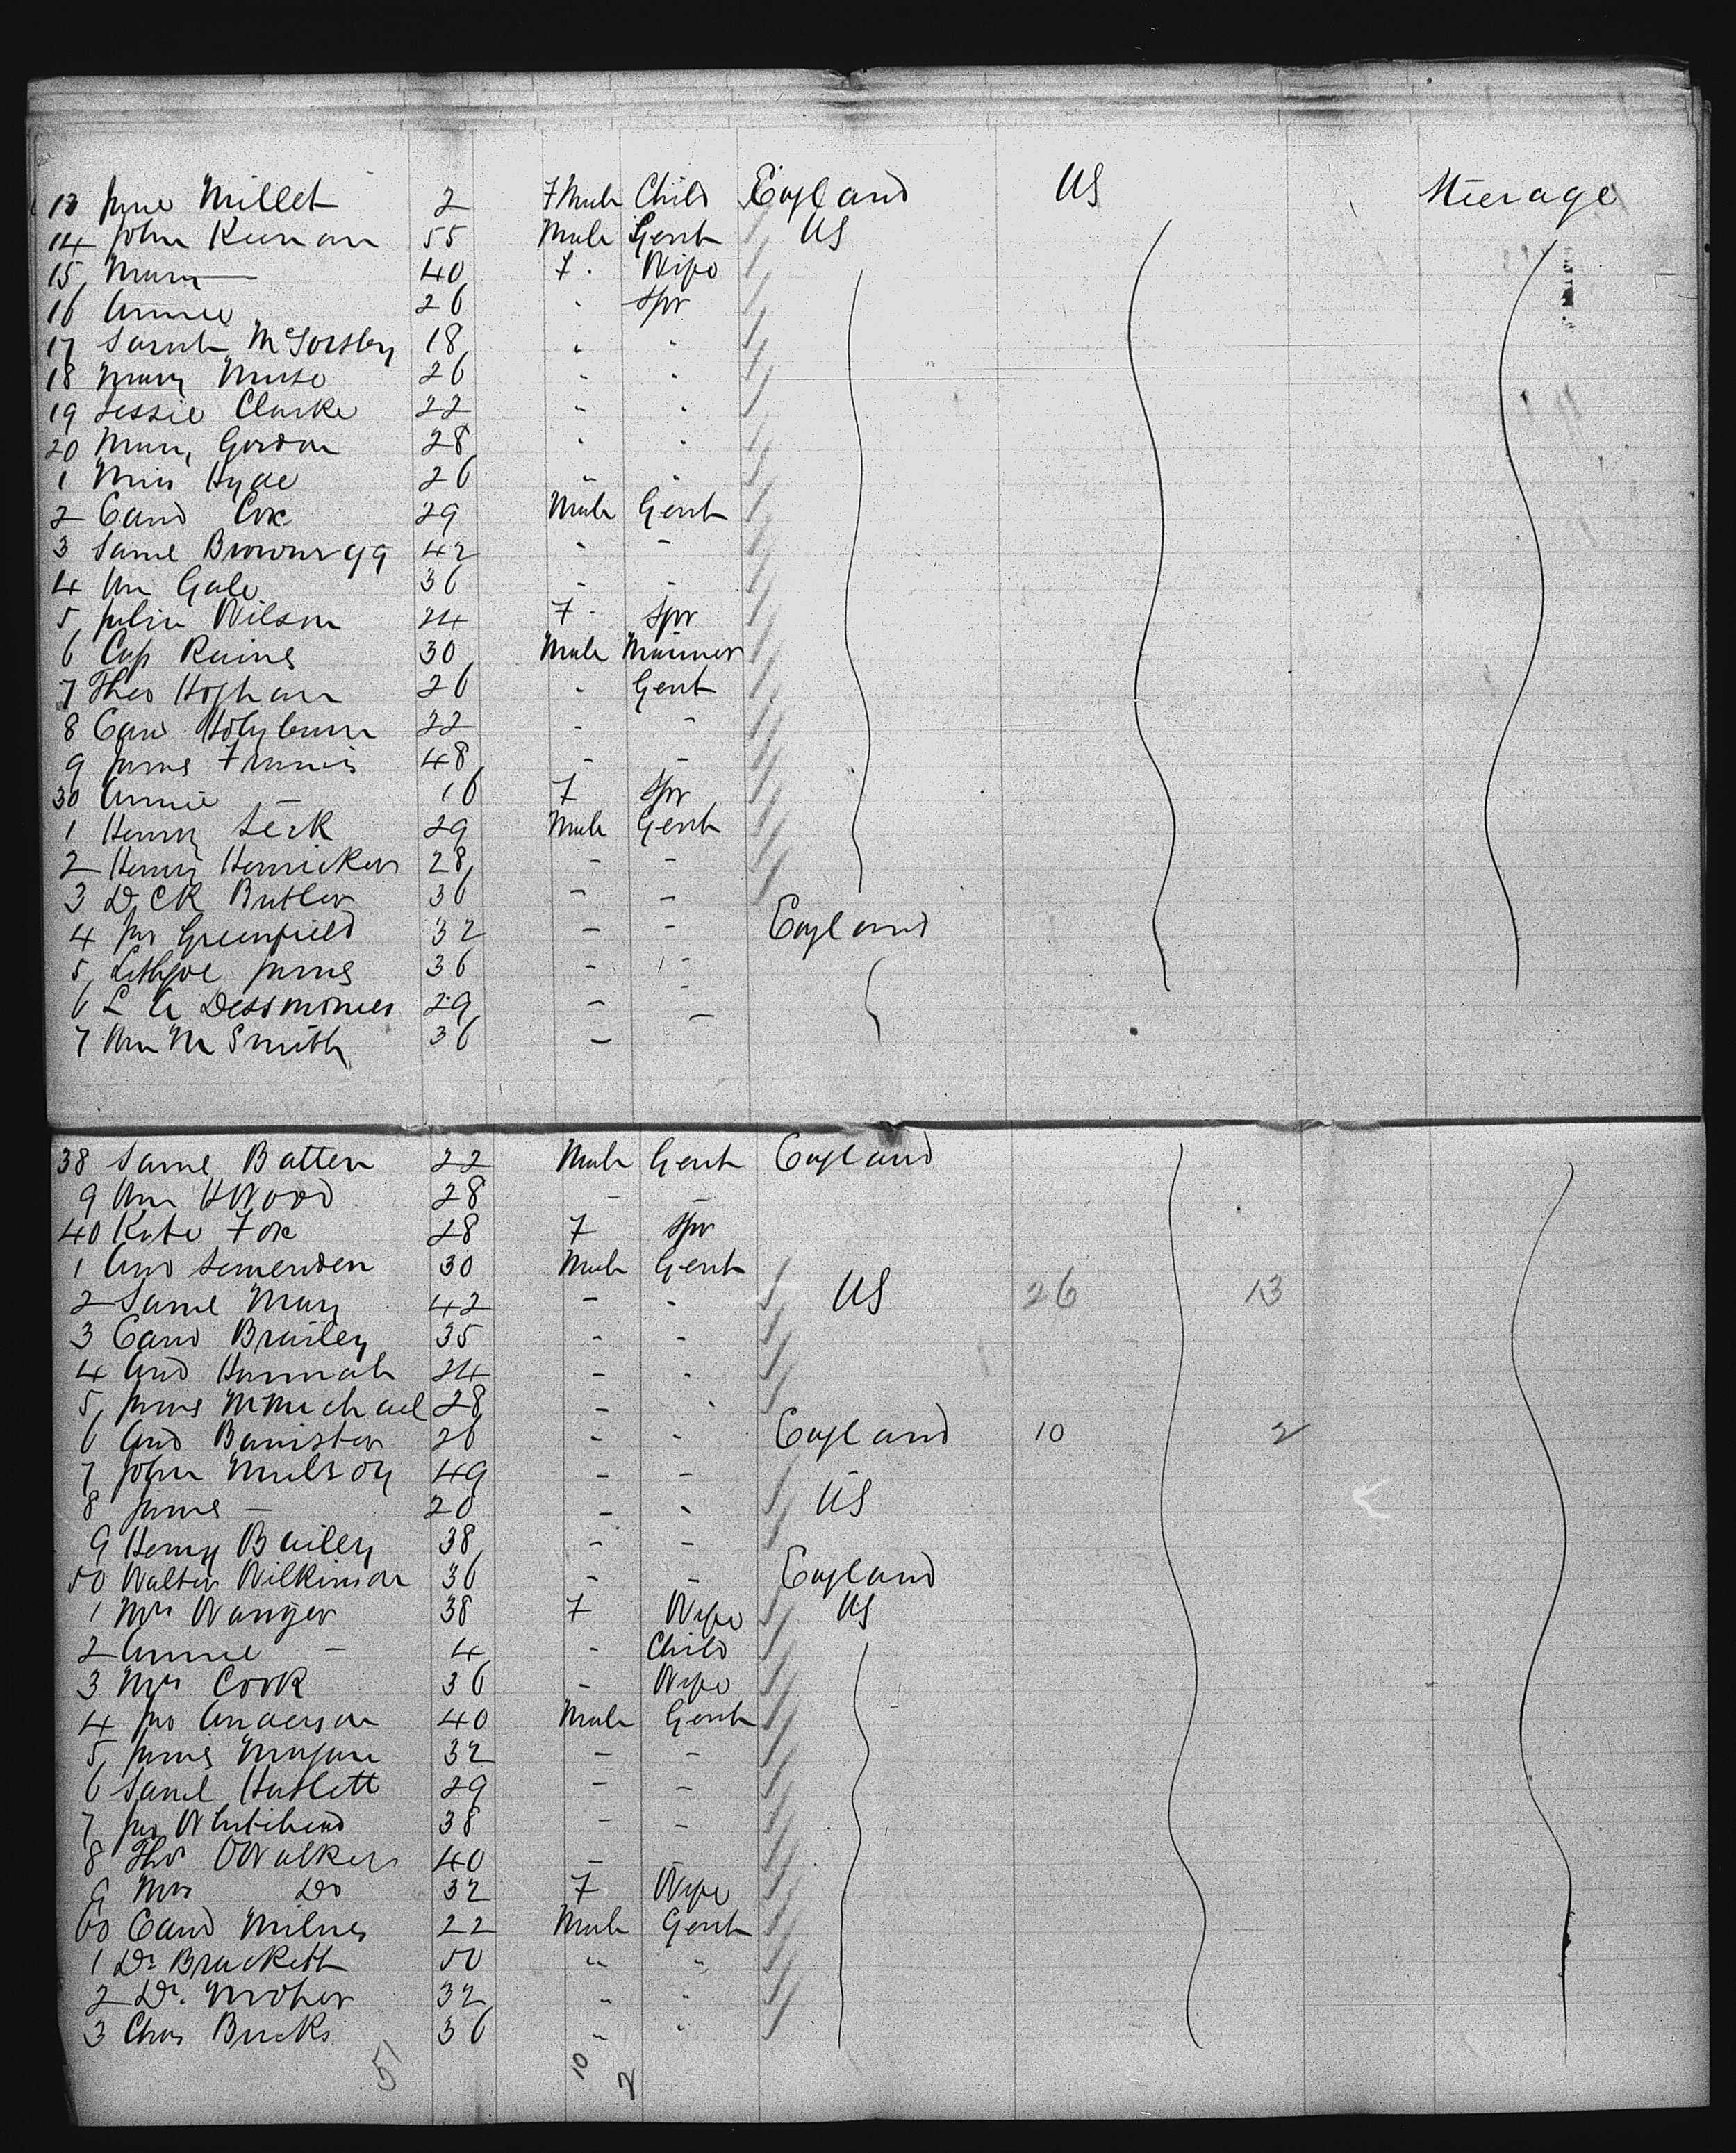 13 Jane Millet 2 Female Child England US Steerage
14 John Keenan 55 Male Gent US
15 Mary — 40 F. Wife
16 Annie 26 " Spr
17 Sarah McGorsley 18 " "
18 Mary Muse 26 " "
19 Jessie Clarke 22 " "
20 Mary Gordon 28 " "
1 Miss Hyde 26 " "
2 Edwd Cox 29 Male Gent
3 Saml Brownrigg 42 " "
4 Wm Gale 36 " "
5 Julia Wilson 24 F. Spr
6 Cap Rains 30 Male Mariner
7 Theo 26 " Gent
8 Edwd 22 " "
9 James Francis 48 " "
30 Annie — 16 F Spr
1 Henry 29 Male Gent
2 Henry 28 " "
3 Dick Butler 36 " "
4 Jno Greenfield 32 " " England
5 Lithgoe James 36 " "
6 L A 29 " "
7 Wm M Smith 36 " "
38 Saml Batten 22 Male Gent England
9 Wm H Wood 28 " "
40 Kate Fox 28 F Spr
1 And 30 Male Gent
2 Saml May 42 " " US 26 13
3 Edwd Brailey 35 " "
4 And Hannah 24 " "
5 James McMichael 28 " "
6 And Banister 26 " " England 10 2
7 John 49 " "
8 James — 20 " " US
9 Henry Bailey 38 " "
50 Walter Wilkinson 36 " " England
1 Mrs Wanger 38 F Wife US
2 Annie — 4 " Child
3 Mrs Cook 36 " Wife
4 Jno Anderson 40 Male Gent
5 James 32 " "
6 Saml Haslett 29 " "
7 Jno Whitehead 38 " "
8 Thos Walker 40 " "
9 Mrs Do 32 F Wife
60 Edwd Milnes 22 Male Gent
1 Dr Brackett 50 " "
2 Dr. Moher 32 " "
3 Chas Bucks 36 " "
51 10 2